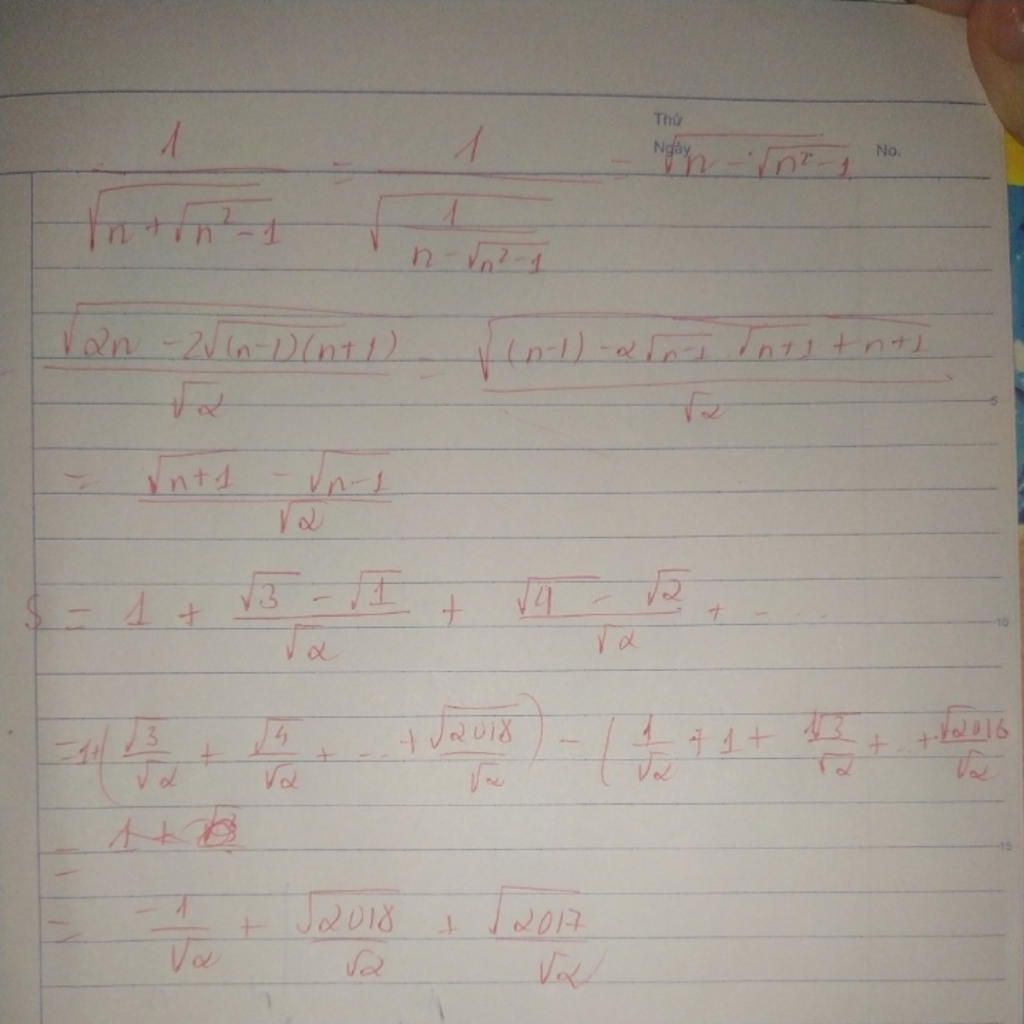 Thứ
Ngày No.
1/√(n+√(n²-1)) = 1/√(1/(n-√(n²-1))) = √(n-√(n²-1))
√(2n-2√((n-1)(n+1)))/√2 = √((n-1)-2√(n-1).√(n+1)+n+1)/√2
5
= (√(n+1) - √(n-1))/√2
S = 1 + (√3 - √1)/√2 + (√4 - √2)/√2 + ...
10
= 1+(√3/√2 + √4/√2 + ... + √2018/√2) - (1/√2 + 1 + √3/√2 + .. + √2016/√2
= 1 +
15
= -1/√2 + √2018/√2 + √2017/√2